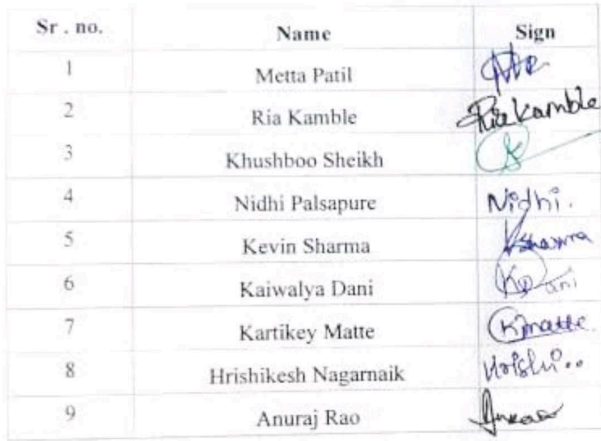 Sr . no. Name Sign
1 Metta Patil
2 Ria Kamble Ria Kamble
3 Khushboo Sheikh
4 Nidhi Palsapure Nidhi.
5 Kevin Sharma KSharma
6 Kaiwalya Dani KDani
7 Kartikey Matte Kmatte
8 Hrishikesh Nagarnaik Hrishi..
9 Anuraj Rao